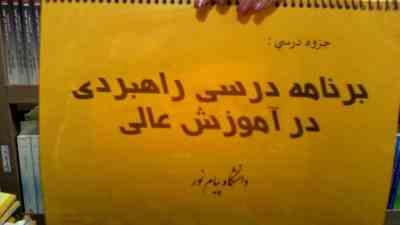 جزوه درسی :
برنامه درسی راهبردی
در آموزش عالی
دانشگاه پیام نور